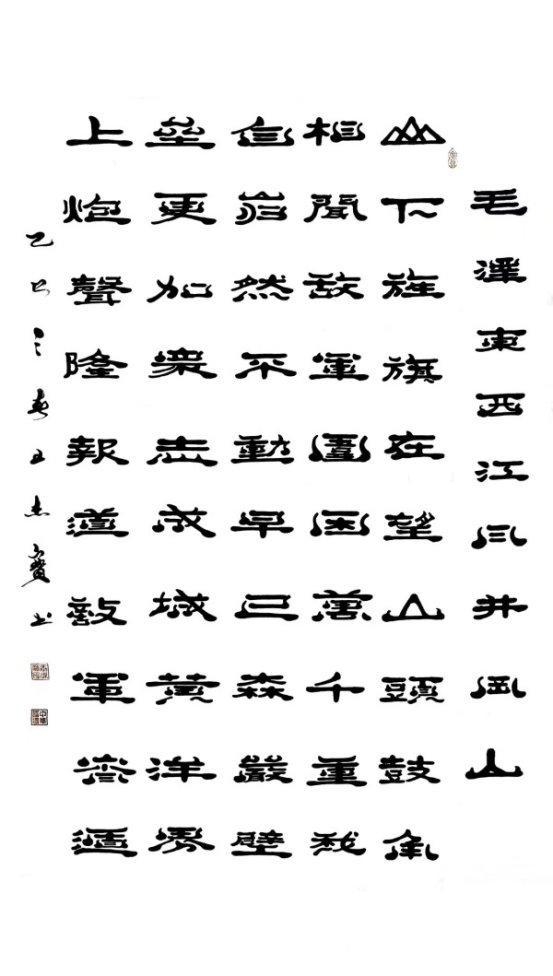 毛澤東西江月井岡山
山下旌旗在望山頭鼓角
相聞敵軍圍困萬千重我
自巋然不動早已森嚴壁
壘更加衆志成城黃洋界
上炮聲隆報道敵軍宵遁
乙巳之春王杰书